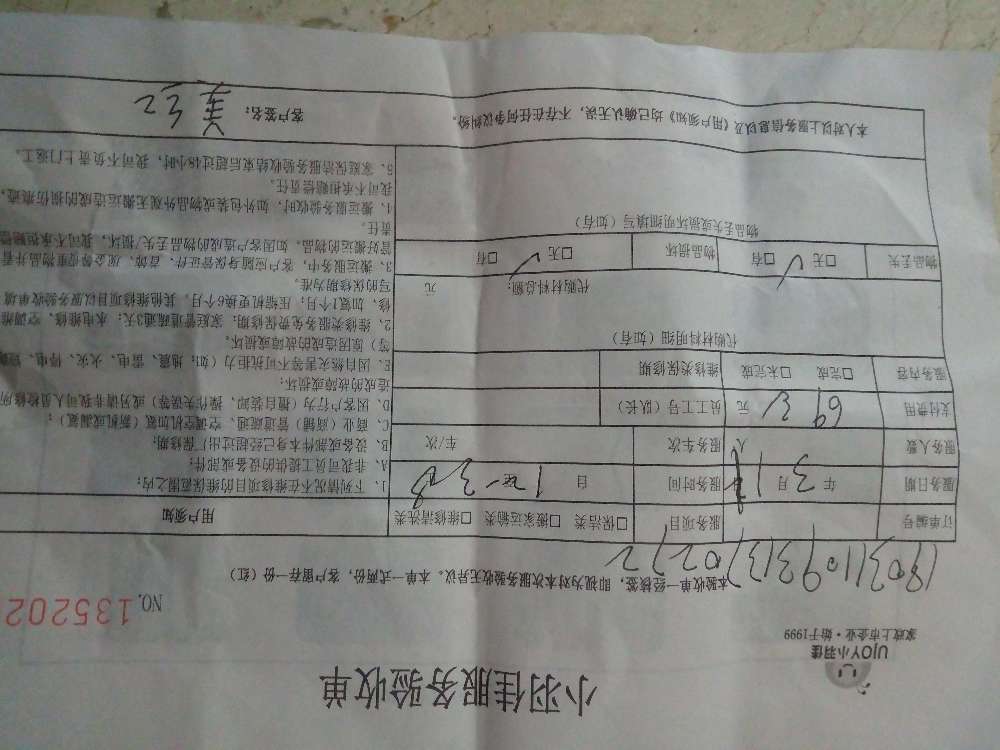 小羽佳服务验收单
UJOY小羽佳
家政上市企业·始于1999
NO. 135202
本验收单一经核签，即视为对本次服务验收无异议。本单一式两份，客户留存一份（红）
订单编号
服务项目 □保洁类 □搬家运输类 □维修清洗类
用户须知
服务日期 年 3 月 1
服务时间 日
服务人数 人
服务车次 车/次
支付费用 693 元
员工工号（队长）
服务内容 □完成 □未完成
维修类保修期
代购材料明细（如有）
代购材料总额： 元
物品丢失 □无 □有
物品损坏 □无 □有
物品丢失或损坏明细填写（如有）
1、下列情况不在维修项目的维保范围之内：
A、非我司员工提供的设备或部件；
B、设备或部件本身已经超过出厂保修期；
C、商业（商铺）管道疏通、空调空机加氟（新机或漏氟）；
D、因客户行为（擅自装卸、操作失误等）或另请非我司人员检修所
造成的故障或损坏；
E、因自然灾害等不可抗拒力（如：地震、雷电、火灾、停电、
等）原因造成的故障或损坏。
2、维修类服务免费保修期：家庭管道疏通3天；水电维修、空调维
修、加氟1个月；压缩机更换6个月，其他维修项目以服务验收单填
写的保修期为准。
3、搬运服务中，客户应随身保管证件、首饰、现金等贵重物品并看
管好搬运的物品。如因客户造成的物品丢失/损坏，我司不承担赔偿
责任。
1、搬运服务验收时，如外包装或物品外观无搬运造成的损伤痕迹，
我司不承担赔偿责任。
5、家庭保洁服务验收结束后超过48小时，我司不负责上门返工。
本人对以上服务信息以及《用户须知》均已确认无误，不存在任何争议纠纷。
客户签名：